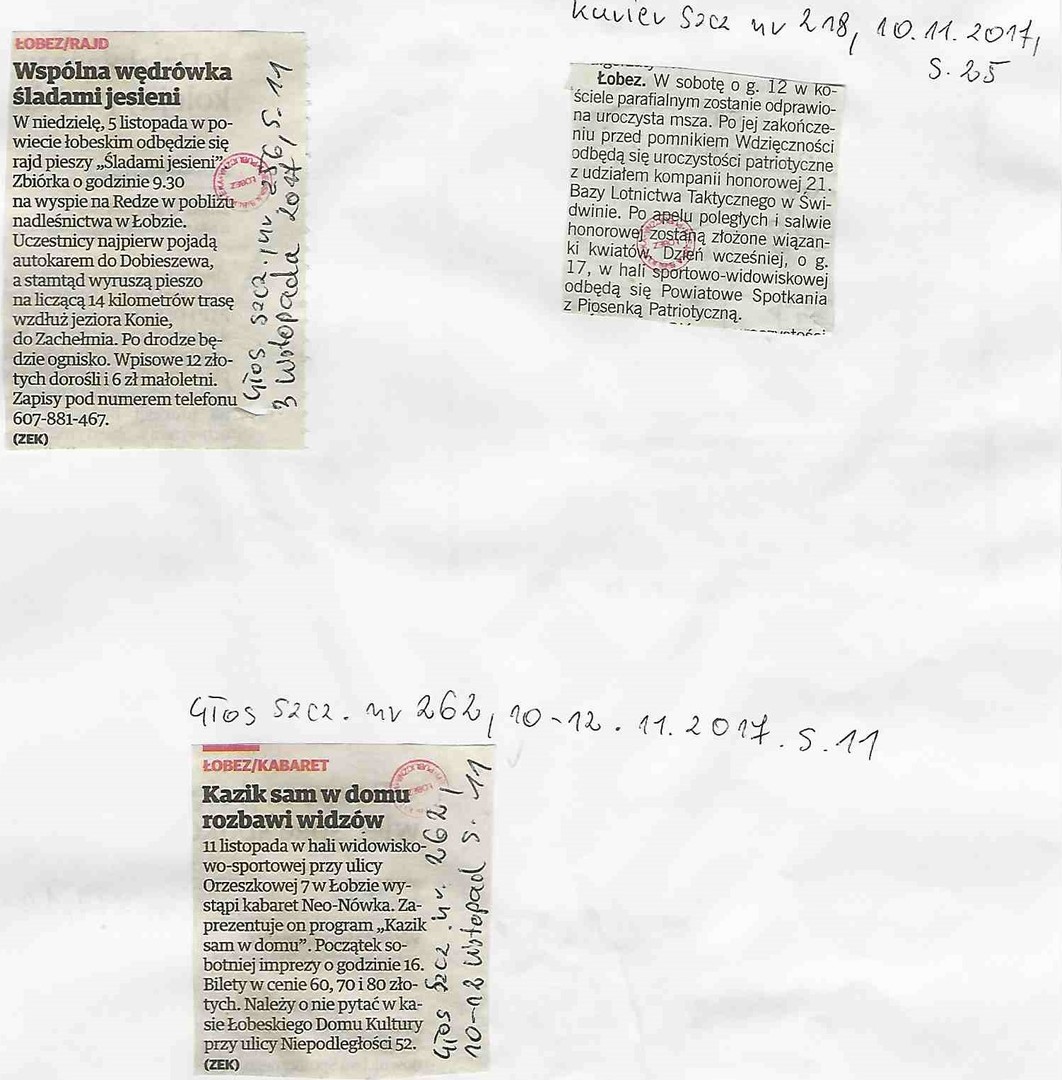 ŁOBEZ/RAJD
Wspólna wędrówka
śladami jesieni
W niedzielę, 5 listopada w po-
wiecie łobeskim odbędzie się
rajd pieszy „Śladami jesieni”.
Zbiórka o godzinie 9.30
na wyspie na Redze w pobliżu
nadleśnictwa w Łobzie.
Uczestnicy najpierw pojadą
autokarem do Dobieszewa,
a stamtąd wyruszą pieszo
na liczącą 14 kilometrów trasę
wzdłuż jeziora Konie,
do Zachełmia. Po drodze bę-
dzie ognisko. Wpisowe 12 zło-
tych dorośli i 6 zł małoletni.
Zapisy pod numerem telefonu
607-881-467.
(ZEK)
Głos Szcz. nr 256, s. 11
3 listopada 2017
Kurier Szcz nr 218, 10.11.2017,
s. 25
Łobez. W sobotę o g. 12 w ko-
ściele parafialnym zostanie odprawio-
na uroczysta msza. Po jej zakończe-
niu przed pomnikiem Wdzięczności
odbędą się uroczystości patriotyczne
z udziałem kompanii honorowej 21.
Bazy Lotnictwa Taktycznego w Świ-
dwinie. Po apelu poległych i salwie
honorowej zostaną złożone wiązan-
ki kwiatów. Dzień wcześniej, o g.
17, w hali sportowo-widowiskowej
odbędą się Powiatowe Spotkania
z Piosenką Patriotyczną.
Głos Szcz. nr 262, 10-12.11.2017. s.11
ŁOBEZ/KABARET
Kazik sam w domu
rozbawi widzów
11 listopada w hali widowisko-
wo-sportowej przy ulicy
Orzeszkowej 7 w Łobzie wy-
stąpi kabaret Neo-Nówka. Za-
prezentuje on program „Kazik
sam w domu”. Początek so-
botniej imprezy o godzinie 16.
Bilety w cenie 60, 70 i 80 zło-
tych. Należy o nie pytać w ka-
sie Łobeskiego Domu Kultury
przy ulicy Niepodległości 52.
(ZEK)
Głos Szcz. nr. 262,
10-12 listopad s. 11